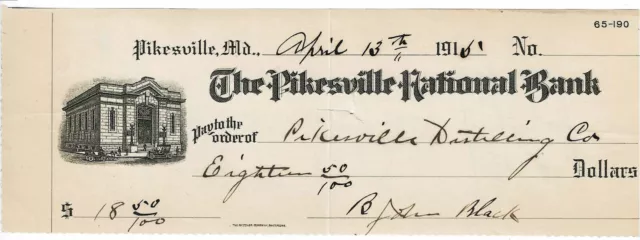 65-190
Pikesville, Md., April 13th 1915 No.
The Pikesville National Bank
Pay to the order of Pikesville Distilling Co
Eighteen 50/100 Dollars
$ 18 50/100 B John Black